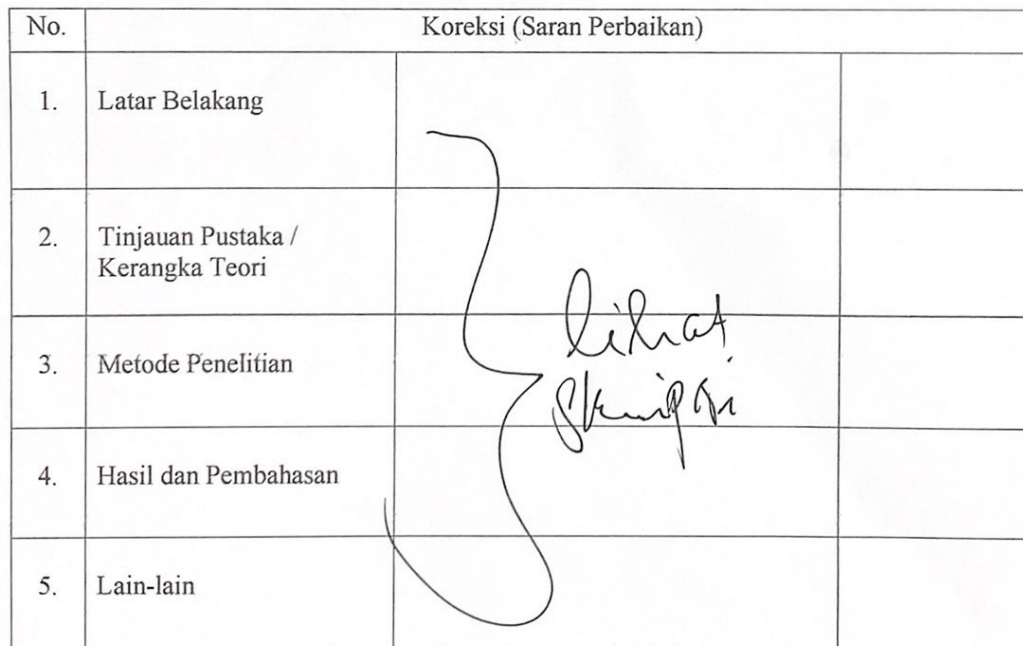 No. Koreksi (Saran Perbaikan)
1. Latar Belakang
2. Tinjauan Pustaka /
Kerangka Teori
3. Metode Penelitian
4. Hasil dan Pembahasan
5. Lain-lain
lihat
skripsi